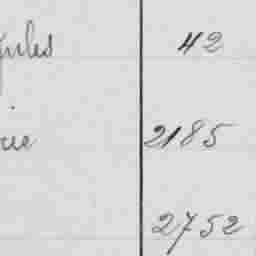 gules 42
2185
2752